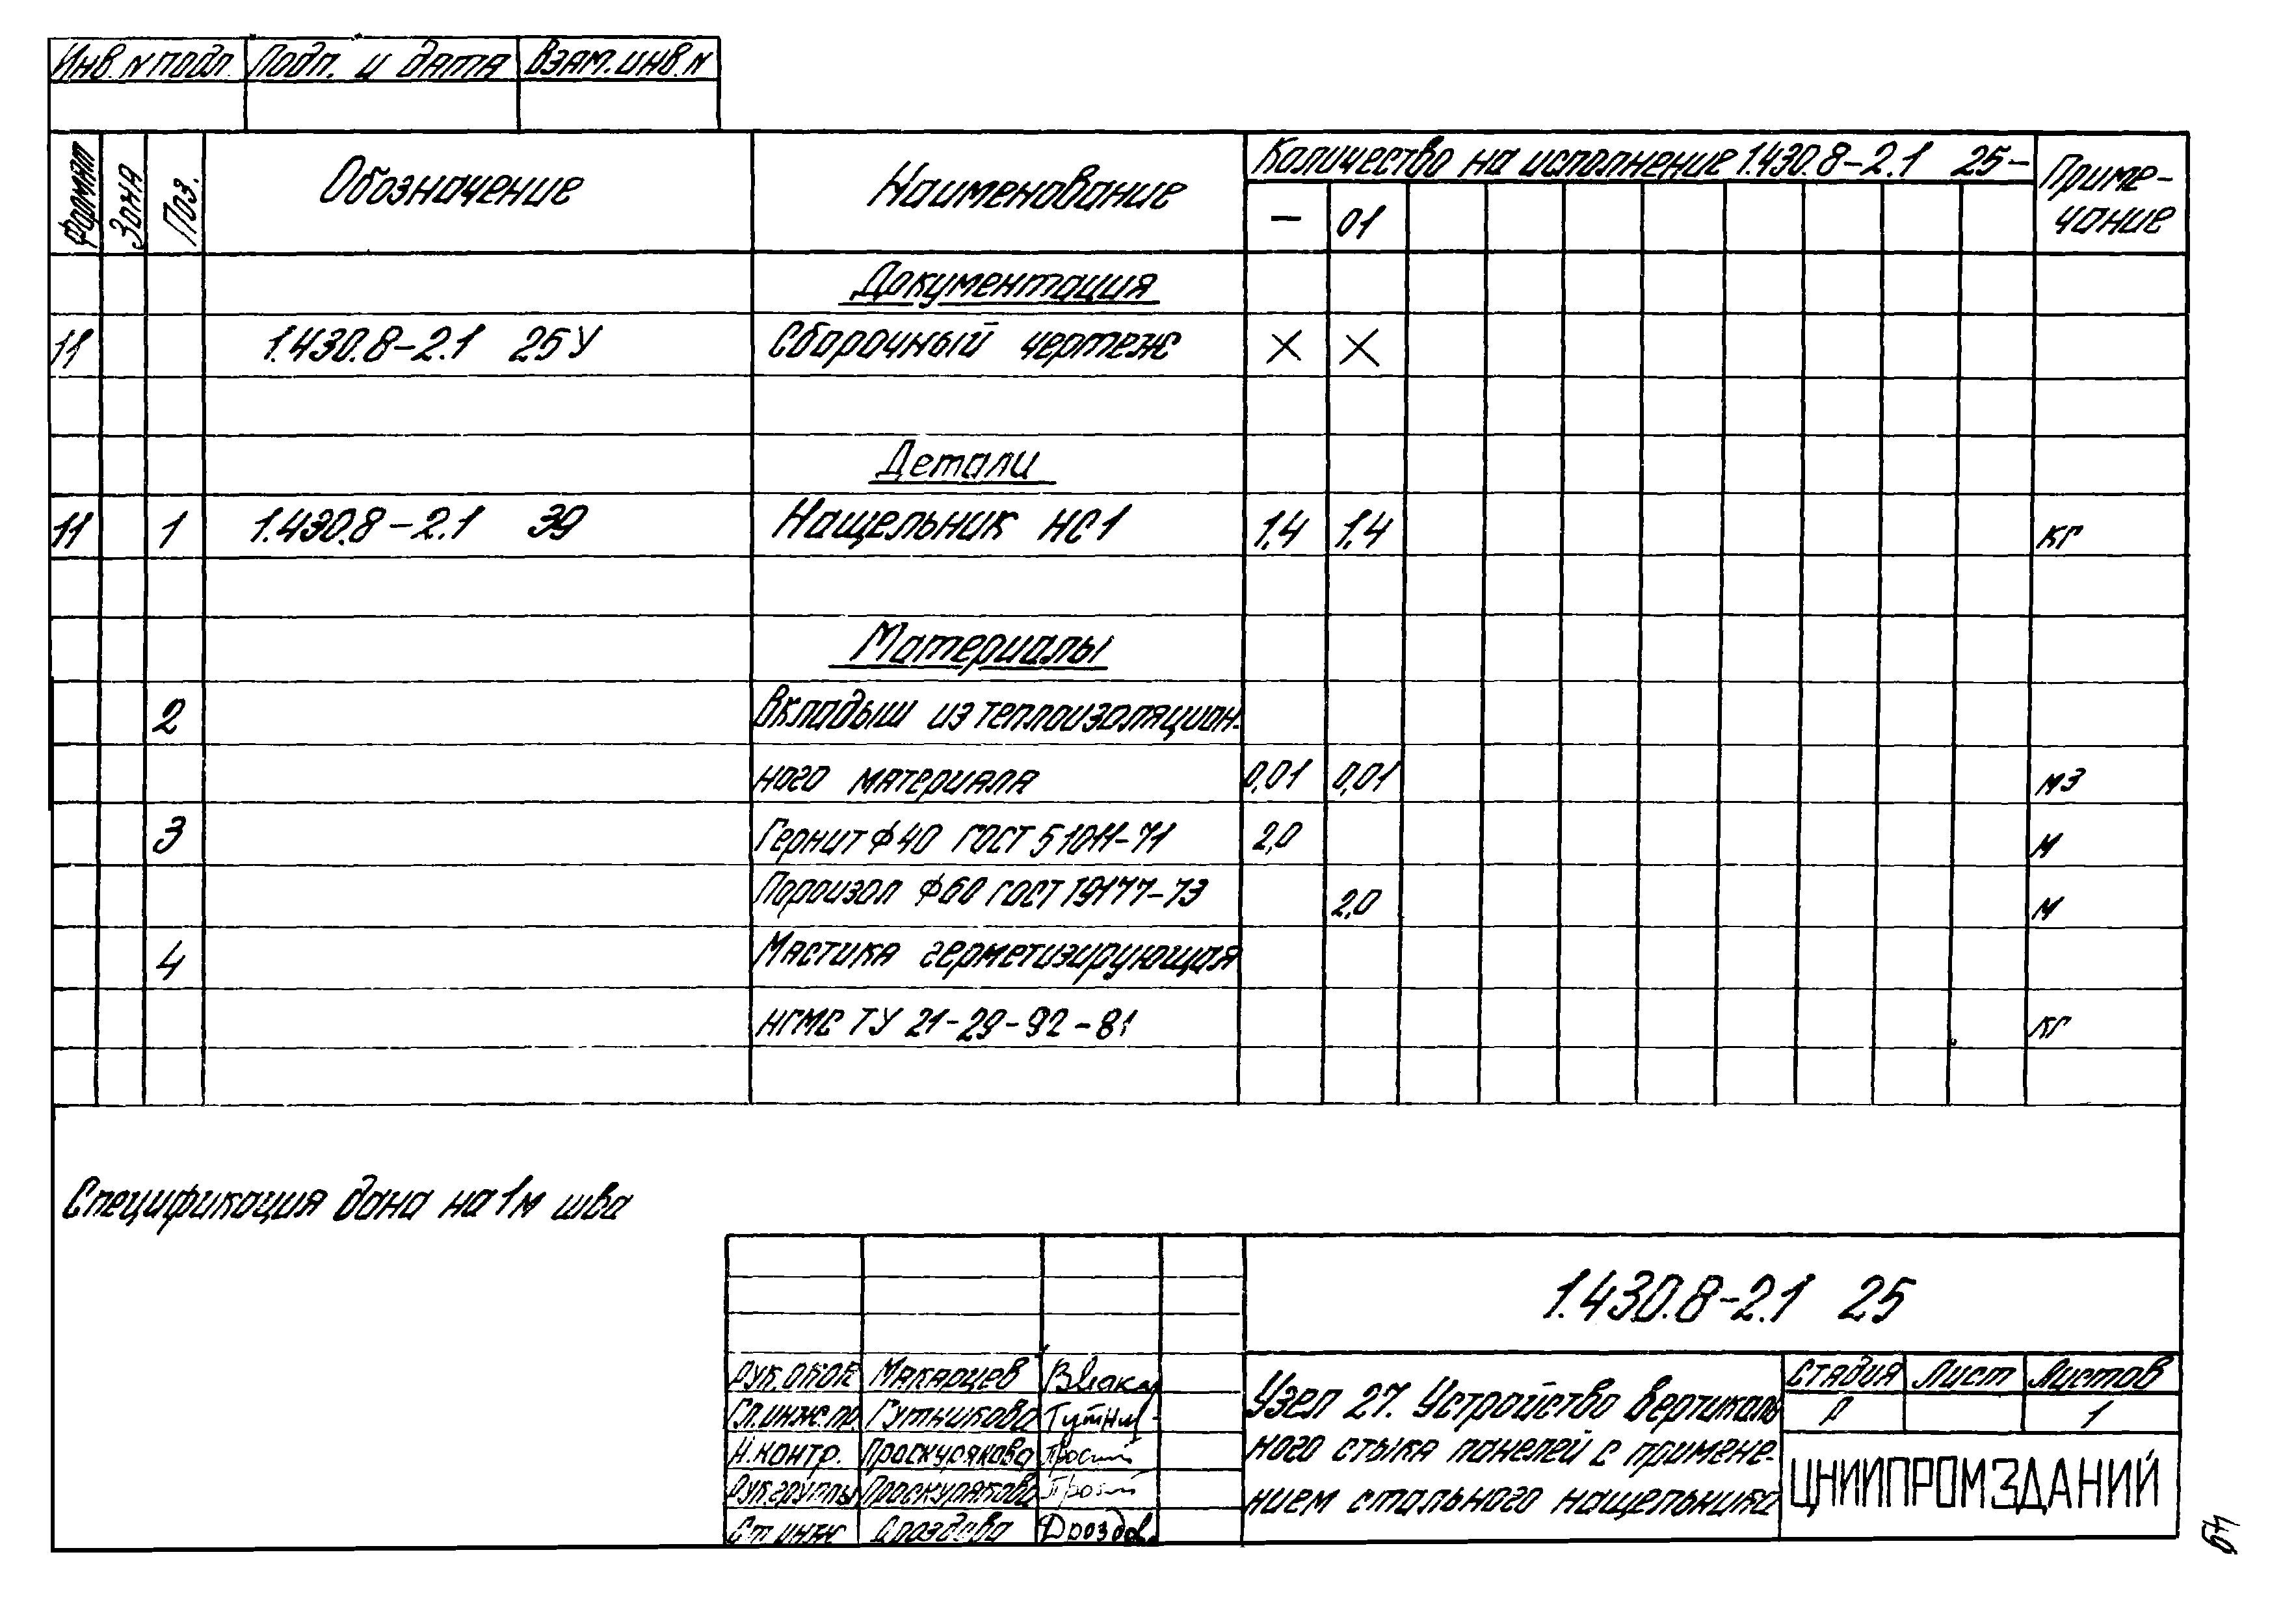 Инв. N подл. Подп. и дата Взам. инв. N
Формат Зона Поз. Обозначение Наименование Количество на исполнение 1.430.8-2.1 25- Приме-
чание
– 01
Документация
11 1.430.8-2.1 25У Сборочный чертеж × ×
Детали
11 1 1.430.8-2.1 39 Нащельник НС1 1,4 1,4 кг
Материалы
2 Вкладыш из теплоизоляцион-
ного материала 0,01 0,01 м3
3 Гернит ф 40 ГОСТ 5 1011-71 2,0 м
Пороизол ф60 ГОСТ 19177-73 2,0 м
4 Мастика герметизирующая
НГМС ТУ 21-29-92-81 кг
Спецификация дана на 1м шва
1.430.8-2.1 25
Рук. Макарцев
Гл. инж. пр. Гутникова Гутник
Н. контр. Проскурякова
Рук. группы Проскурякова
Ст. инж Дроздова Дроздов
Узел 27. Устройство вертикаль
ного стыка панелей с примене-
нием стального нащельника
Стадия Лист Листов
Р 1
ЦНИИПРОМЗДАНИЙ
64